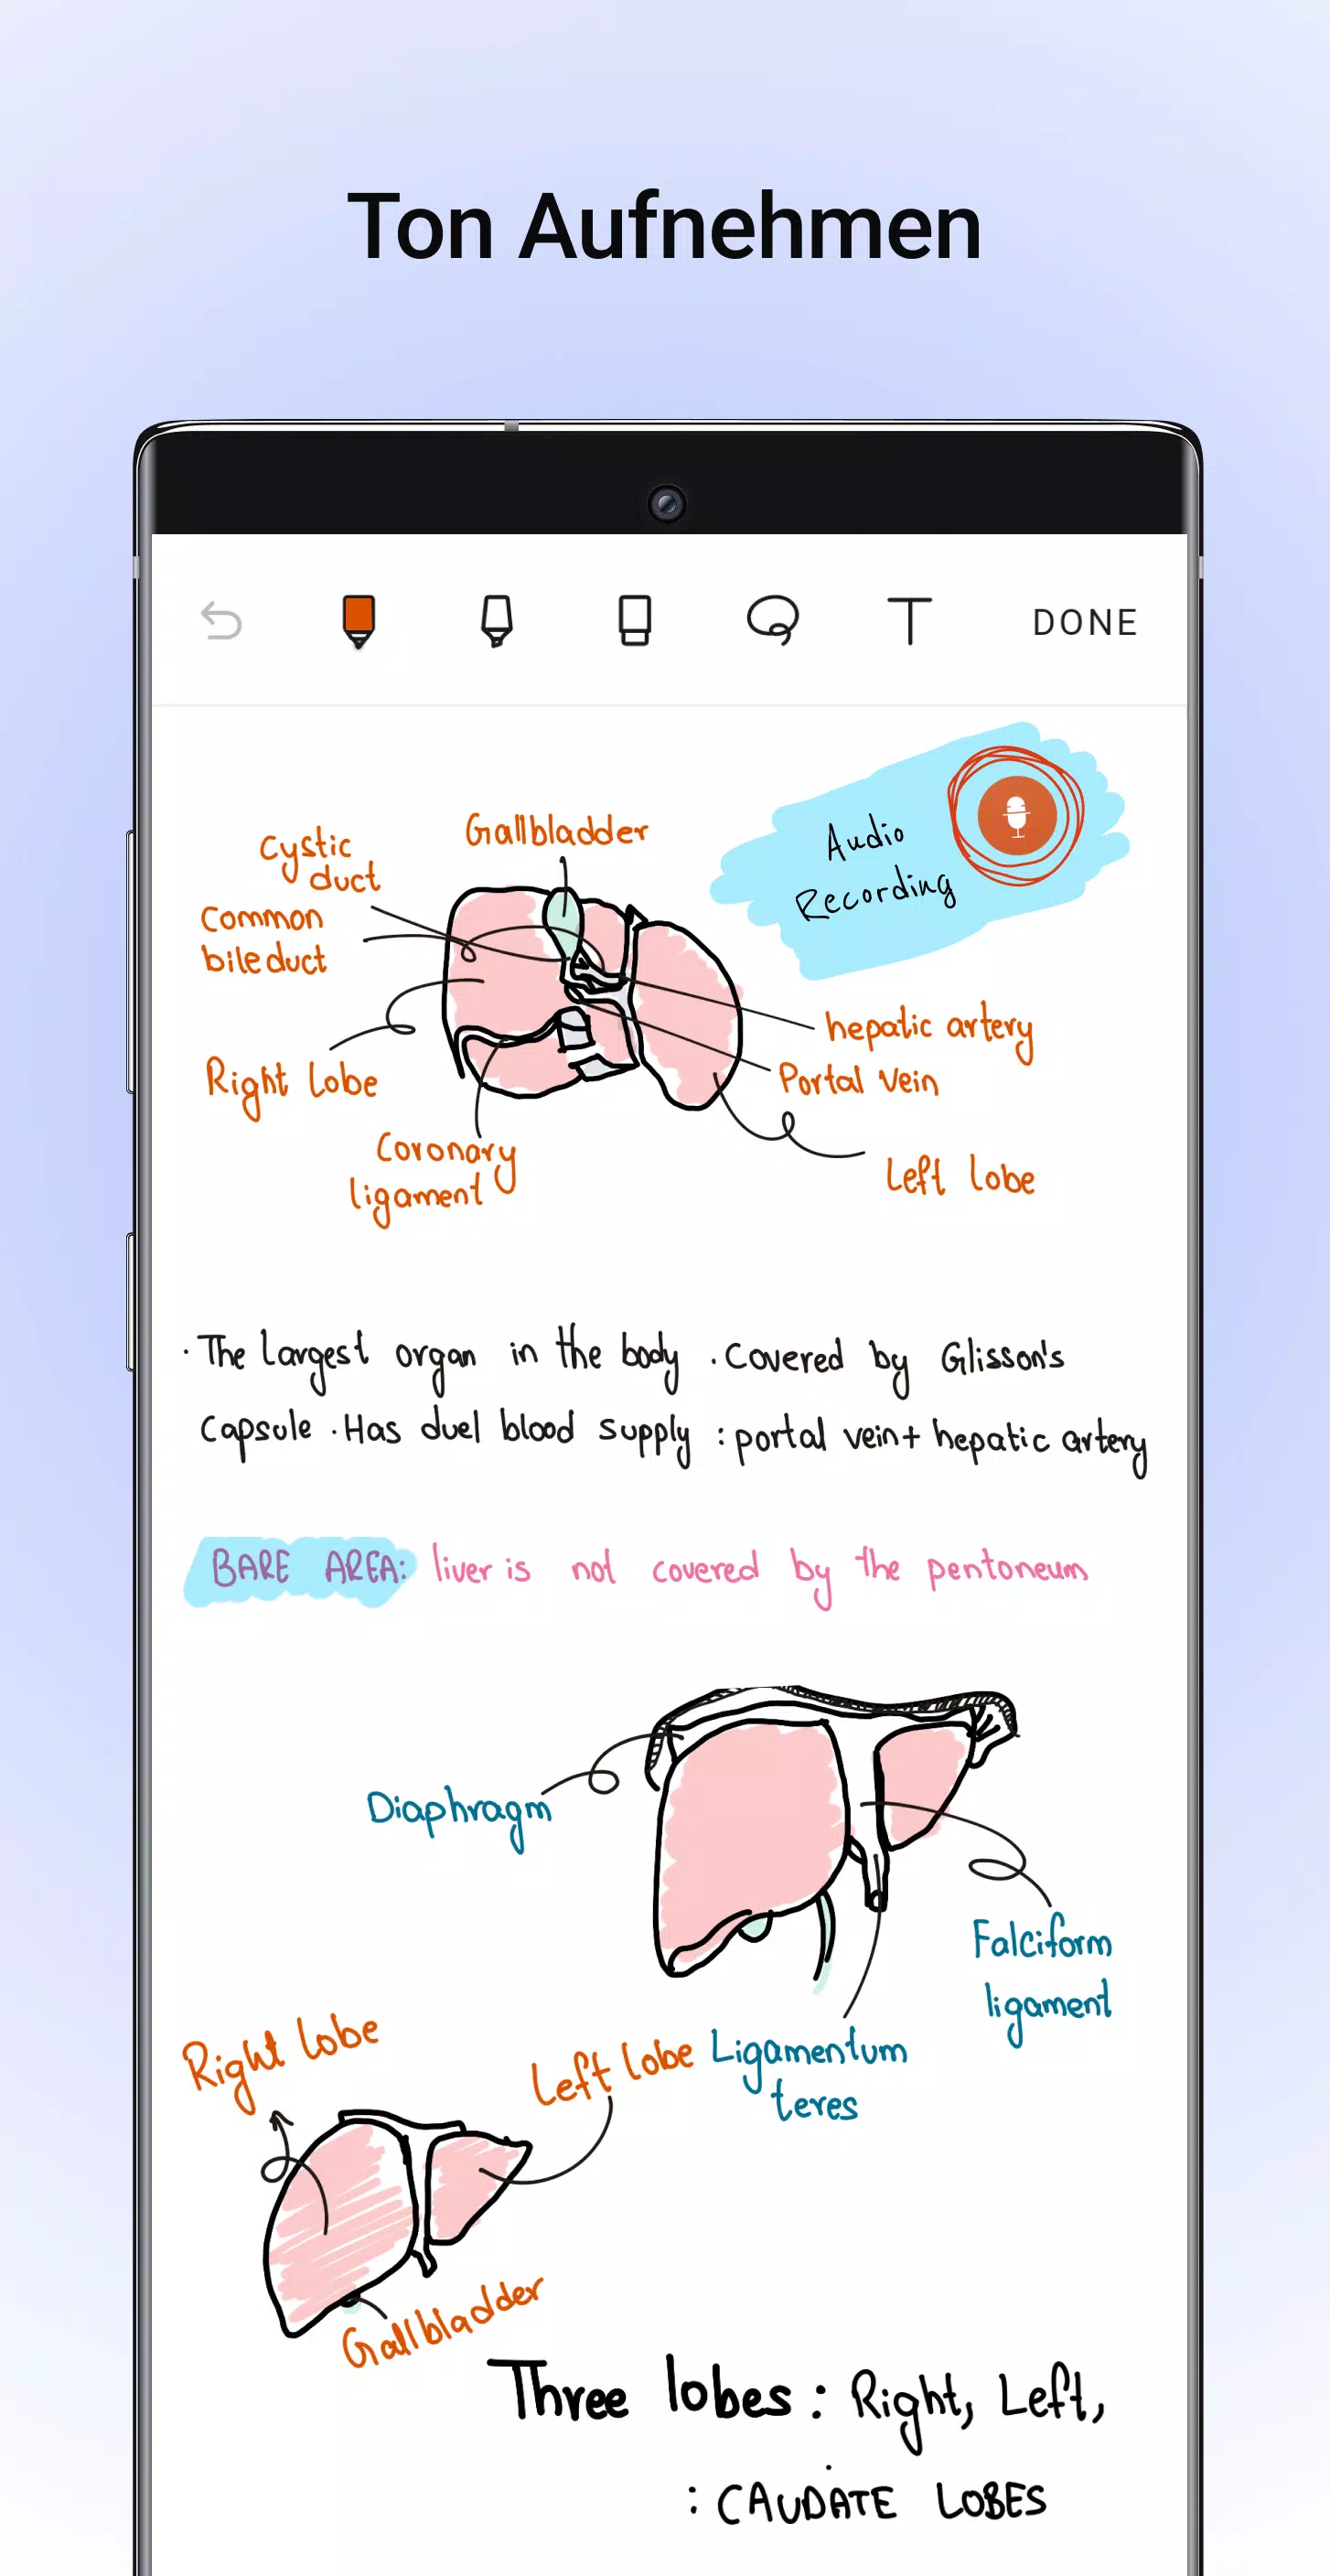 Ton Aufnehmen
DONE
Audio
Recording
Gallbladder
Cystic
duct
Common
bile duct
Right lobe
Coronary
ligament
hepatic artery
Portal vein
Left lobe
· The largest organ in the body · Covered by Glisson's
Capsule · Has duel blood supply : portal vein + hepatic artery
BARE AREA: liver is not covered by the pentoneum
Diaphragm
Falciform
ligament
Ligamentum
teres
Right lobe
Left lobe
Gallbladder
Three lobes : Right, Left,
: CAUDATE LOBES